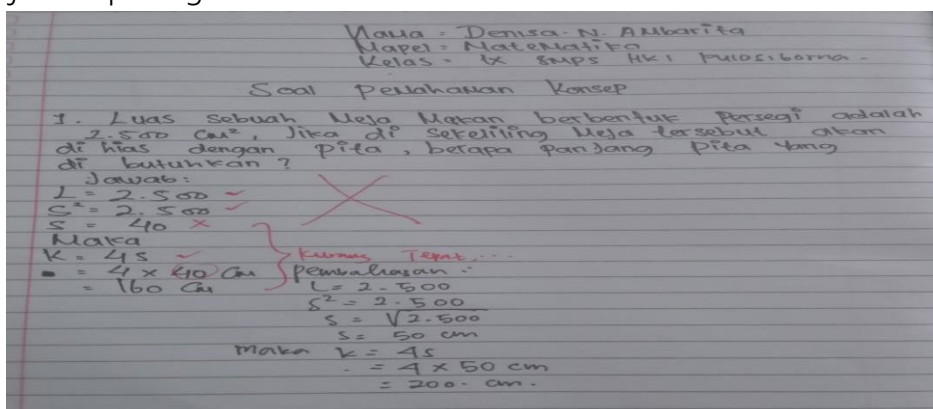 Nama = Denisa. N. Ambarita
Mapel = Matematika
Kelas = IX SMPS HKI Pulosiborna.
Soal Pemahaman Konsep
1. Luas sebuah Meja Makan berbentuk Persegi adalah
2.500 cm², Jika di sekeliling Meja tersebut akan
di hias dengan pita, berapa panjang pita yang
di butuhkan ?
Jawab:
L = 2.500
S² = 2.500
S = 40
Maka
K = 4S
= 4 × 40 cm
= 160 cm
Kurang Tepat...
Pembahasan :
L = 2.500
S² = 2.500
S = √2.500
S = 50 cm
maka K = 4S
= 4 × 50 cm
= 200. cm.